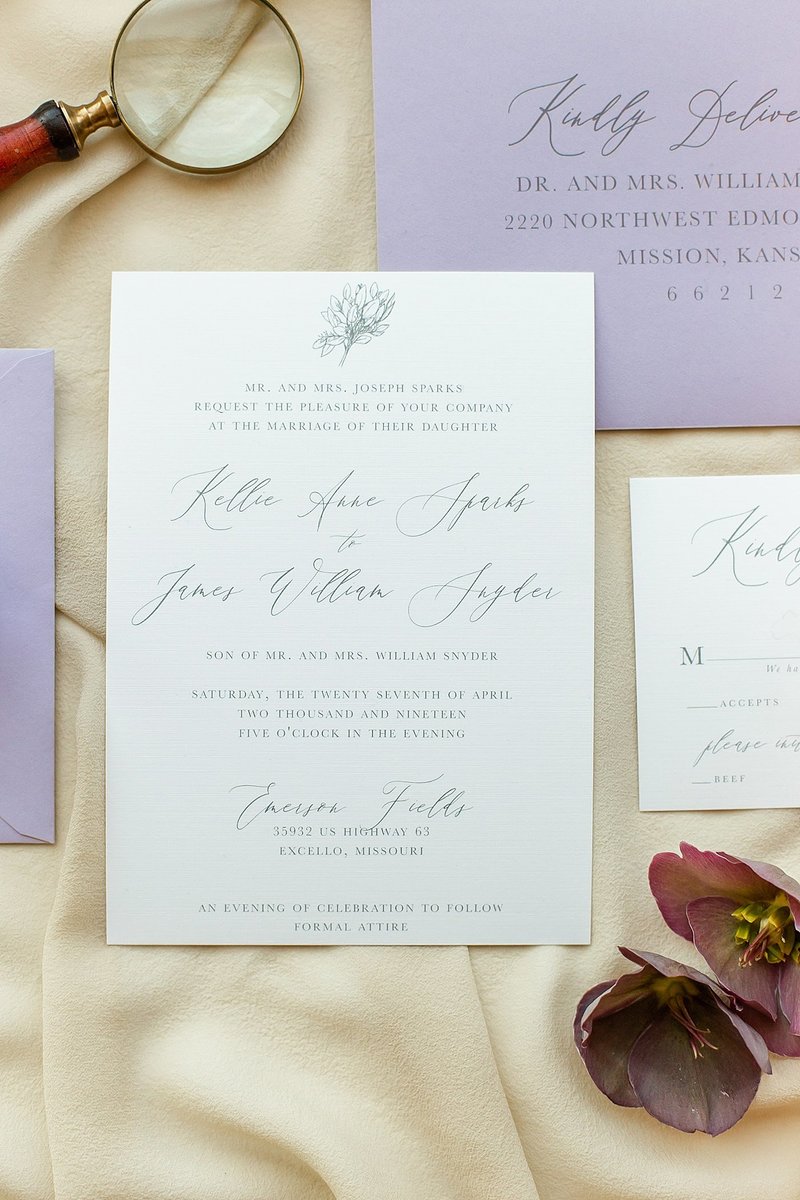 Kindly
DR. AND MRS. WILLIAM
2220 NORTHWEST
MISSION,
66212
MR. AND MRS. JOSEPH SPARKS
REQUEST THE PLEASURE OF YOUR COMPANY
AT THE MARRIAGE OF THEIR DAUGHTER
Kellie Anne Sparks
to
James William Snyder
SON OF MR. AND MRS. WILLIAM SNYDER
SATURDAY, THE TWENTY SEVENTH OF APRIL
TWO THOUSAND AND NINETEEN
FIVE O'CLOCK IN THE EVENING
Emerson Fields
35932 US HIGHWAY 63
EXCELLO, MISSOURI
AN EVENING OF CELEBRATION TO FOLLOW
FORMAL ATTIRE
M
We
ACCEPTS
please
BEEF